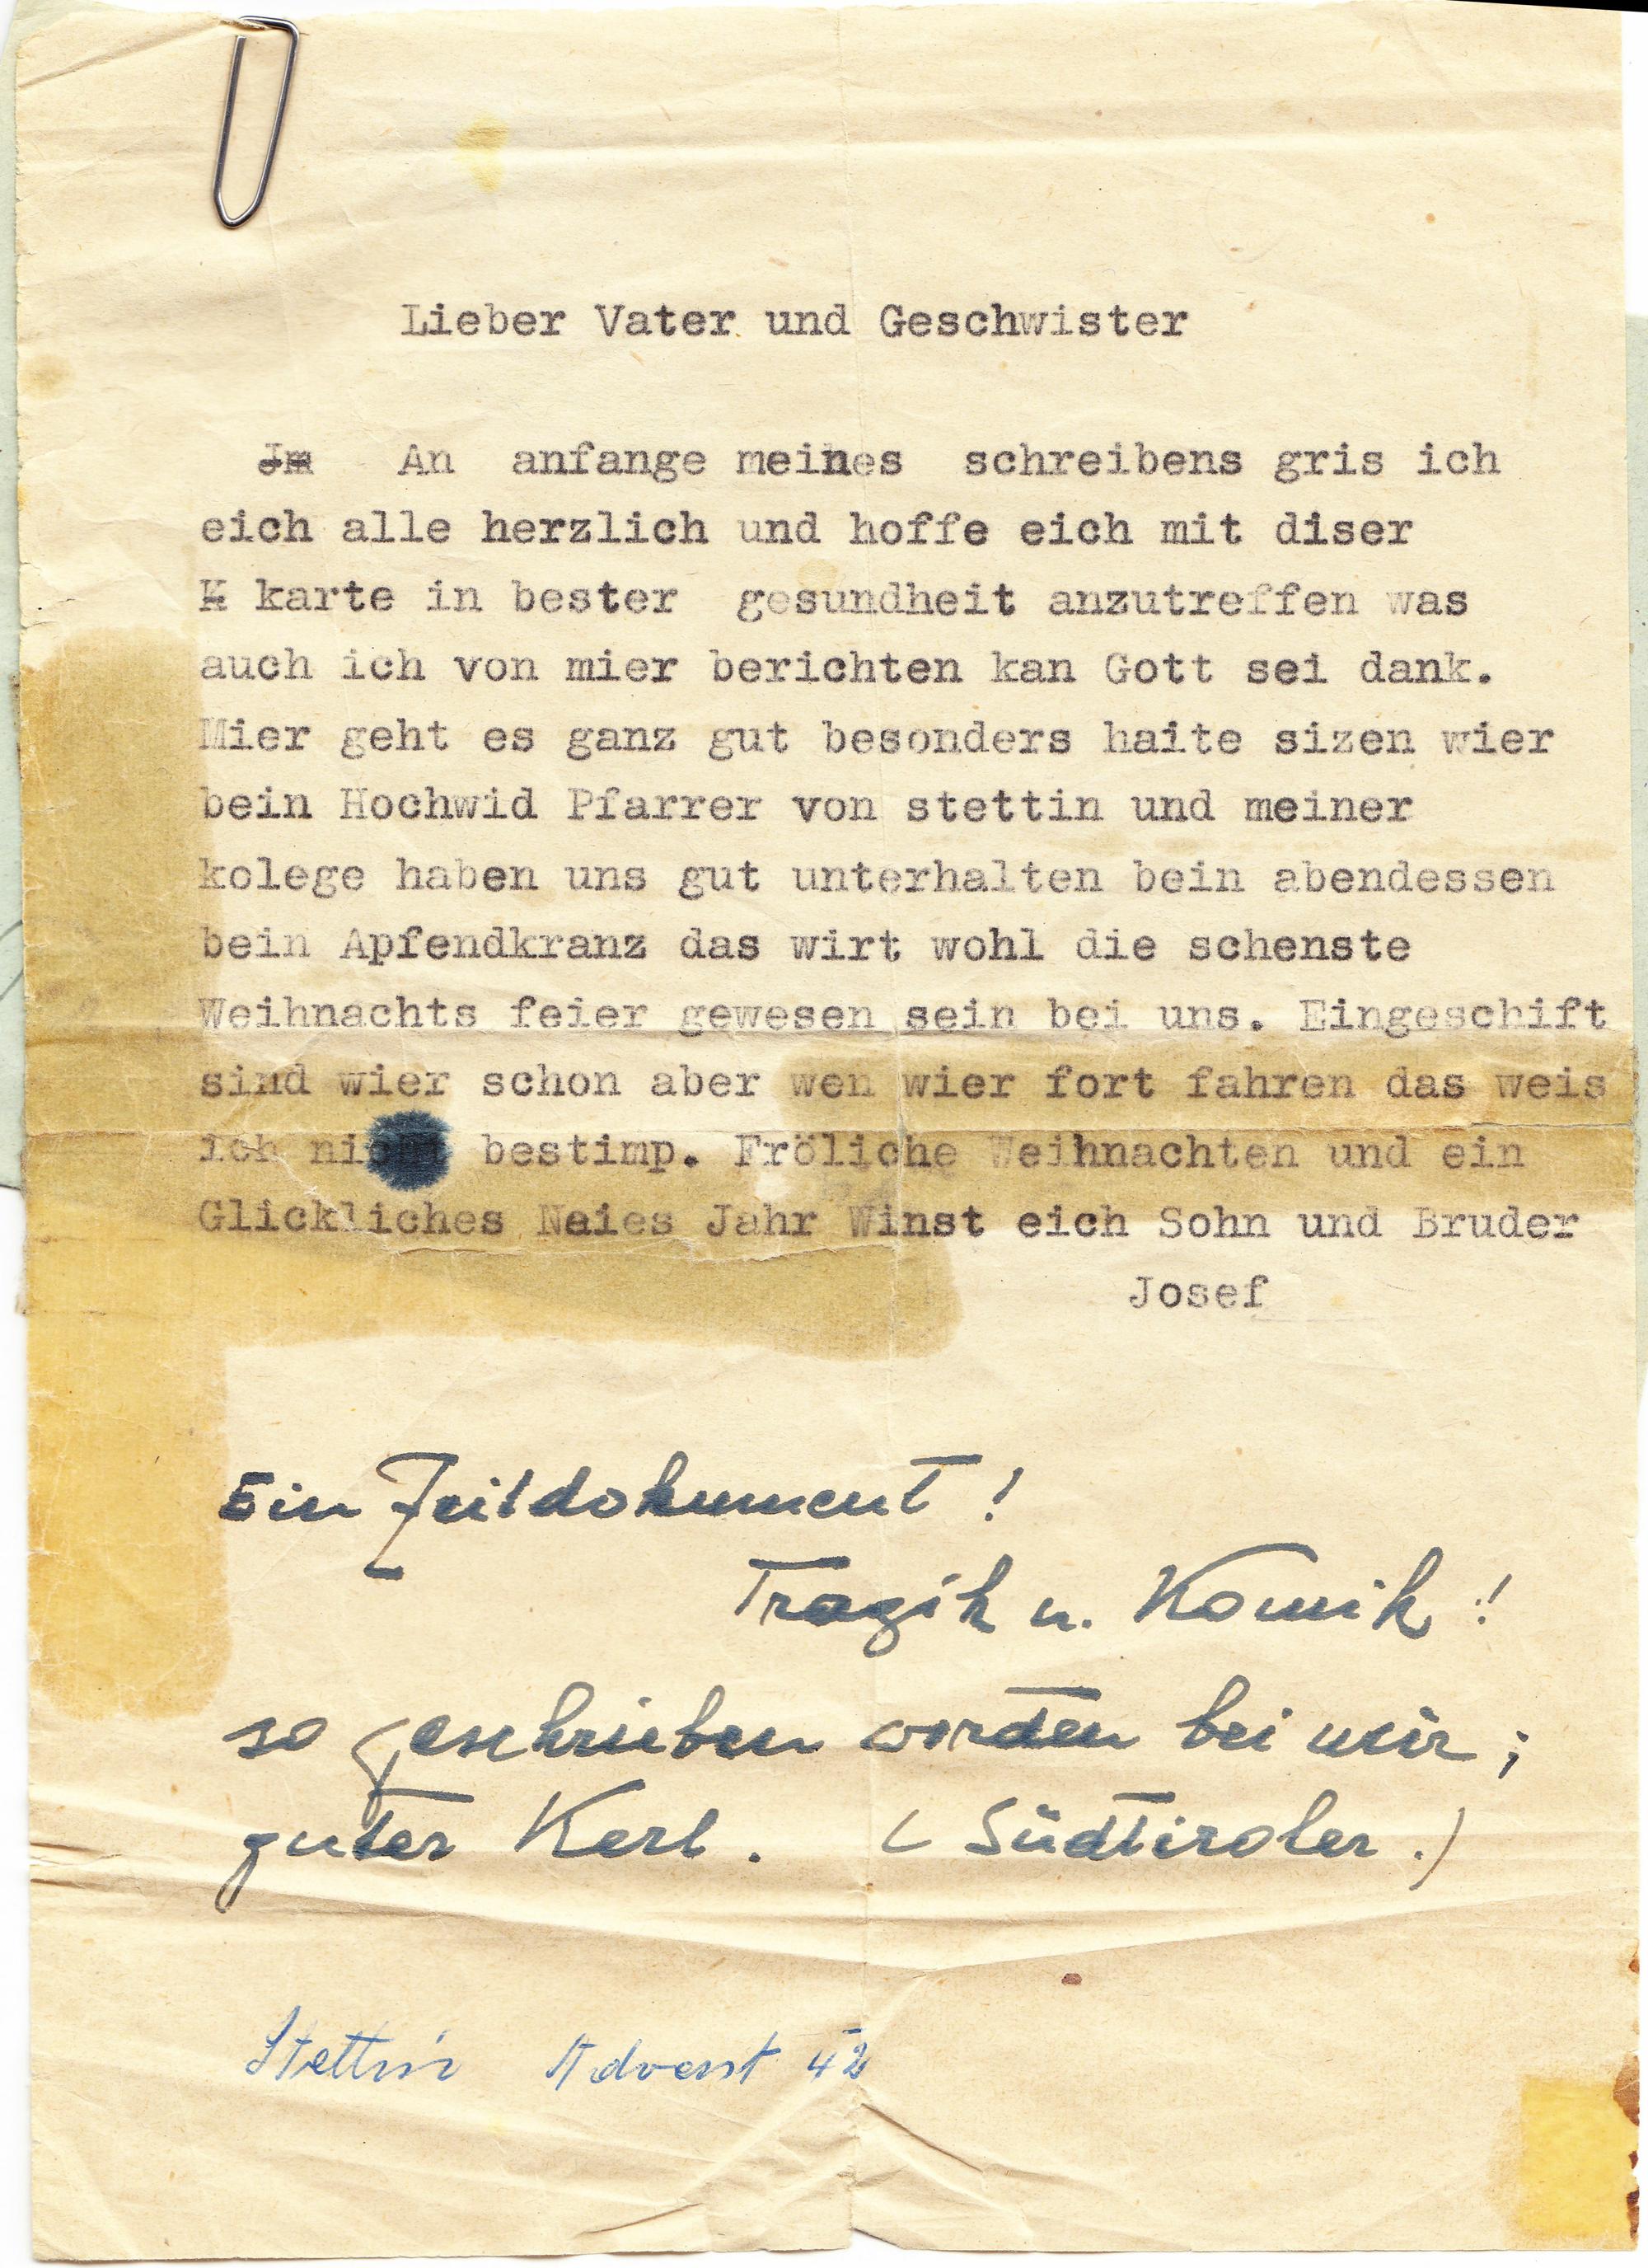 Lieber Vater und Geschwister
Jm An anfange meines schreibens gris ich
eich alle herzlich und hoffe eich mit diser
K karte in bester gesundheit anzutreffen was
auch ich von mier berichten kan Gott sei dank.
Mier geht es ganz gut besonders haite sizen wier
bein Hochwid Pfarrer von stettin und meiner
kolege haben uns gut unterhalten bein abendessen
bein Apfendkranz das wirt wohl die schenste
Weihnachts feier gewesen sein bei uns. Eingeschift
sind wier schon aber wen wier fort fahren das weis
ich nicht bestimp. Fröliche Weihnachten und ein
Glickliches Naies Jahr Winst eich Sohn und Bruder
Josef
Ein Zeitdokument!
Tragik u. Komik!
so geschrieben worden bei mir;
guter Kerl. (Südtiroler.)
Stettin Advent 42